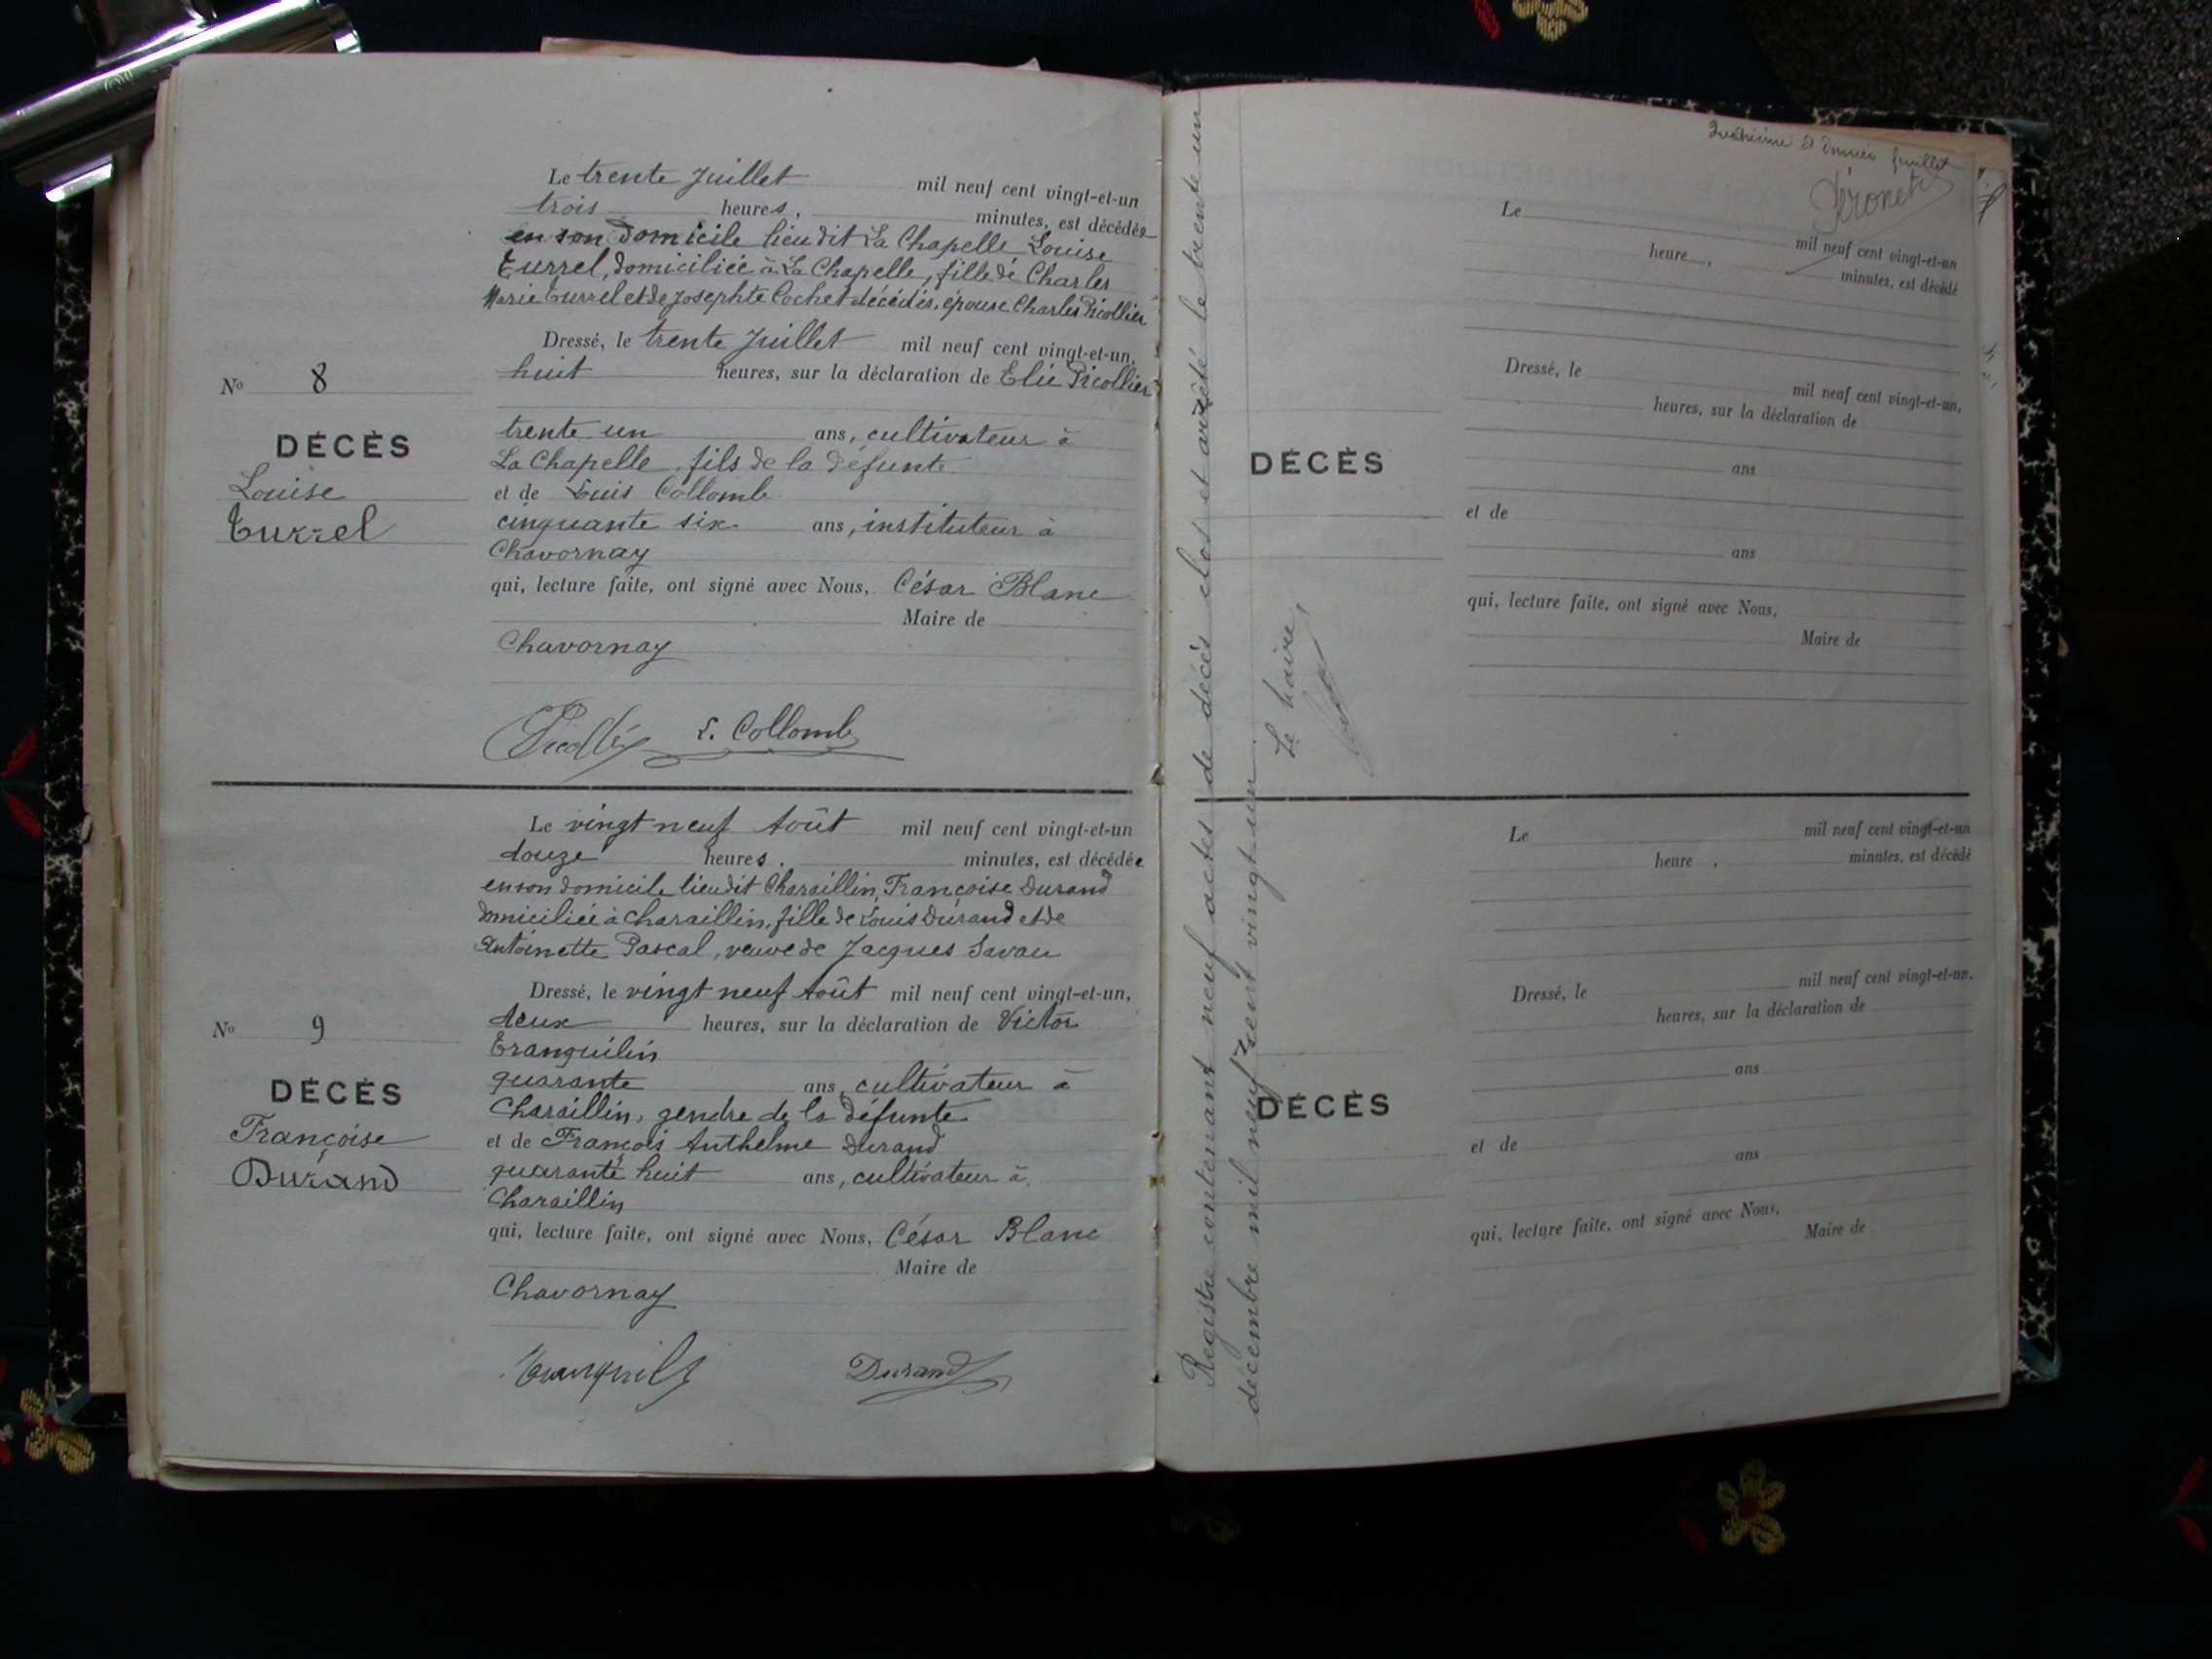 Le trente Juillet mil neuf cent vingt-et-un
trois heures, minutes, est décédée
en son domicile lieu dit La Chapelle Louise
Turrel, domiciliée à La Chapelle, fille de Charles
Marie Turrel et de Josephte Cochet décédés, épouse Charles Picollier
Dressé, le trente Juillet mil neuf cent vingt-et-un,
huit heures, sur la déclaration de Elie Picollier
trente un ans, cultivateur à
La Chapelle, fils de la défunte
et de Louis Collomb
cinquante six ans, instituteur à
Chavornay
qui, lecture faite, ont signé avec Nous, César Blanc
Maire de
Chavornay
L. Collomb
No 8
DÉCÈS
Louise
Turrel
Le vingt neuf Août mil neuf cent vingt-et-un
douze heures, minutes, est décédée
en son domicile lieu dit Charaillin, Françoise Durand
domiciliée à Charaillin, fille de Louis Durand et de
Antoinette Pascal, veuve de Jacques Savau
Dressé, le vingt neuf Août mil neuf cent vingt-et-un,
deux heures, sur la déclaration de Victor
Tranquilin
quarante ans, cultivateur à
Charaillin, gendre de la défunte
et de François Anthelme Durand
quarante huit ans, cultivateur à
Charaillin
qui, lecture faite, ont signé avec Nous, César Blanc
Maire de
Chavornay
Durand
No 9
DÉCÈS
Françoise
Durand
Registre contenant neuf actes de décès clos et arrêté le trente un
décembre mil neuf cent vingt-un.
Le Maire,
et dernier feuillet
Le mil neuf cent vingt-et-un
heure, minutes, est décédé
Dressé, le mil neuf cent vingt-et-un,
heures, sur la déclaration de
DÉCÈS
ans
et de
ans
qui, lecture faite, ont signé avec Nous,
Maire de
Le mil neuf cent vingt-et-un
heure, minutes, est décédé
Dressé, le mil neuf cent vingt-et-un,
heures, sur la déclaration de
ans
DÉCÈS
et de
ans
qui, lecture faite, ont signé avec Nous,
Maire de